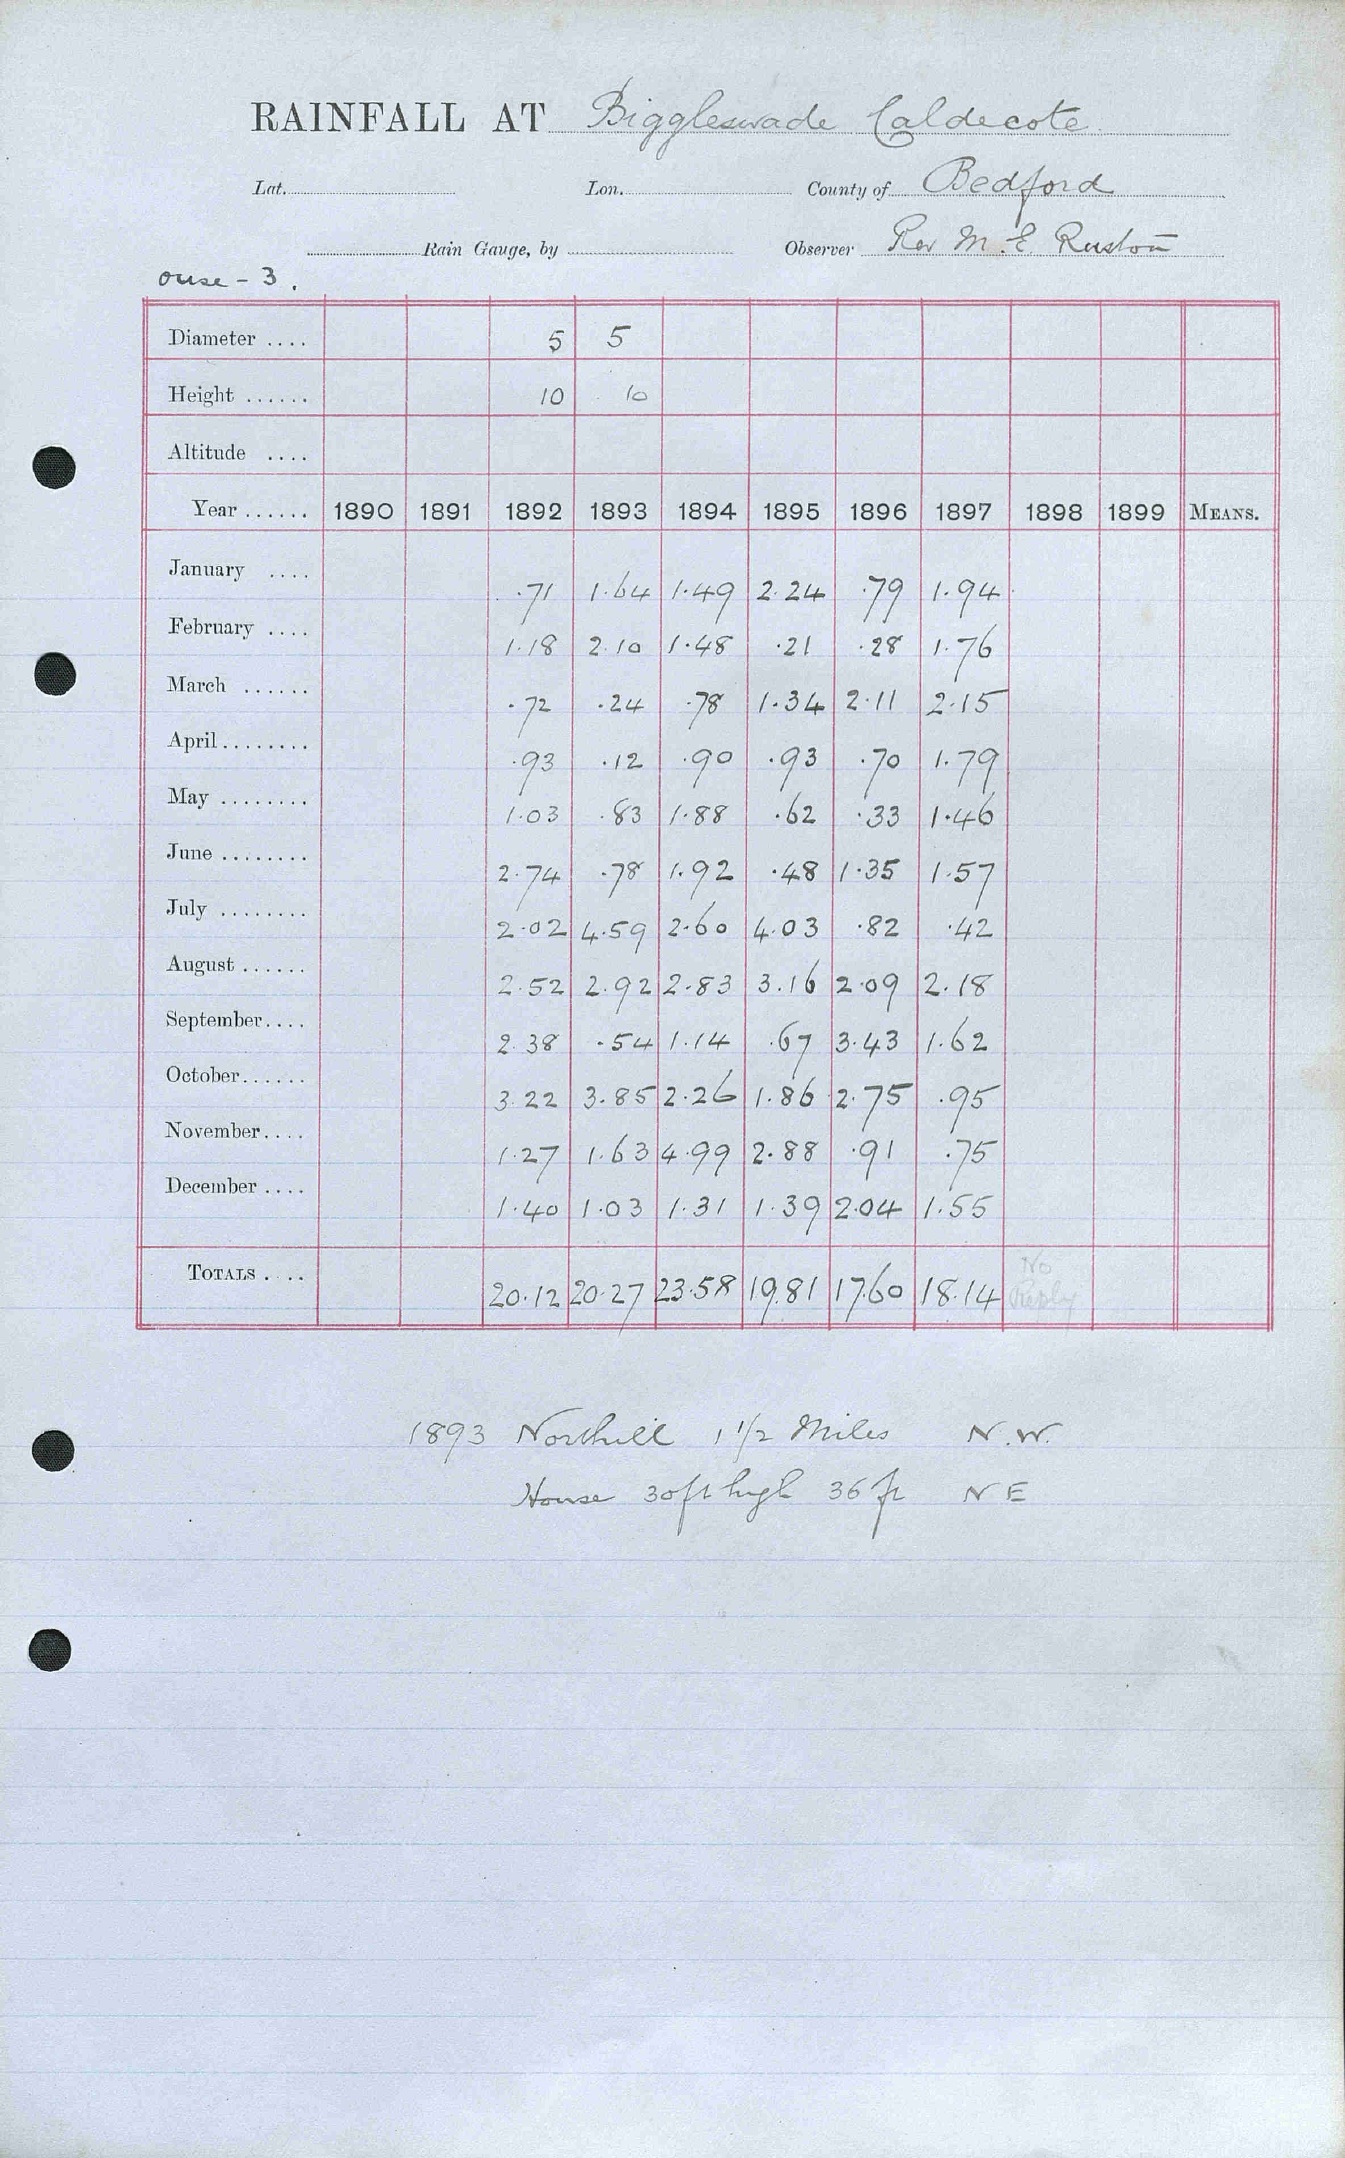 RAINFALL AT Biggleswade Caldecote
Lat. Lon. County of Bedford
Rain Gauge, by Observer Rev M. E Ruston
ouse - 3.
Diameter .... 5 5
Height ...... 10 10
Altitude ....
Year ...... 1890 1891 1892 1893 1894 1895 1896 1897 1898 1899 MEANS.
January .... .71 1.64 1.49 2.24 .79 1.94
February .... 1.18 2.10 1.48 .21 .28 1.76
March ...... .72 .24 .78 1.34 2.11 2.15
April ........ .93 .12 .90 .93 .70 1.79
May ........ 1.03 .83 1.88 .62 .33 1.46
June ........ 2.74 .78 1.92 .48 1.35 1.57
July ........ 2.02 4.59 2.60 4.03 .82 .42
August ...... 2.52 2.92 2.83 3.16 2.09 2.18
September.... 2.38 .54 1.14 .67 3.43 1.62
October...... 3.22 3.85 2.26 1.86 2.75 .95
November.... 1.27 1.63 4.99 2.88 .91 .75
December .... 1.40 1.03 1.31 1.39 2.04 1.55
TOTALS .... 20.12 20.27 23.58 19.81 17.60 18.14 No Reply
1893 Northill 1 1/2 Miles N.W.
House 30ft high 36 ft N E